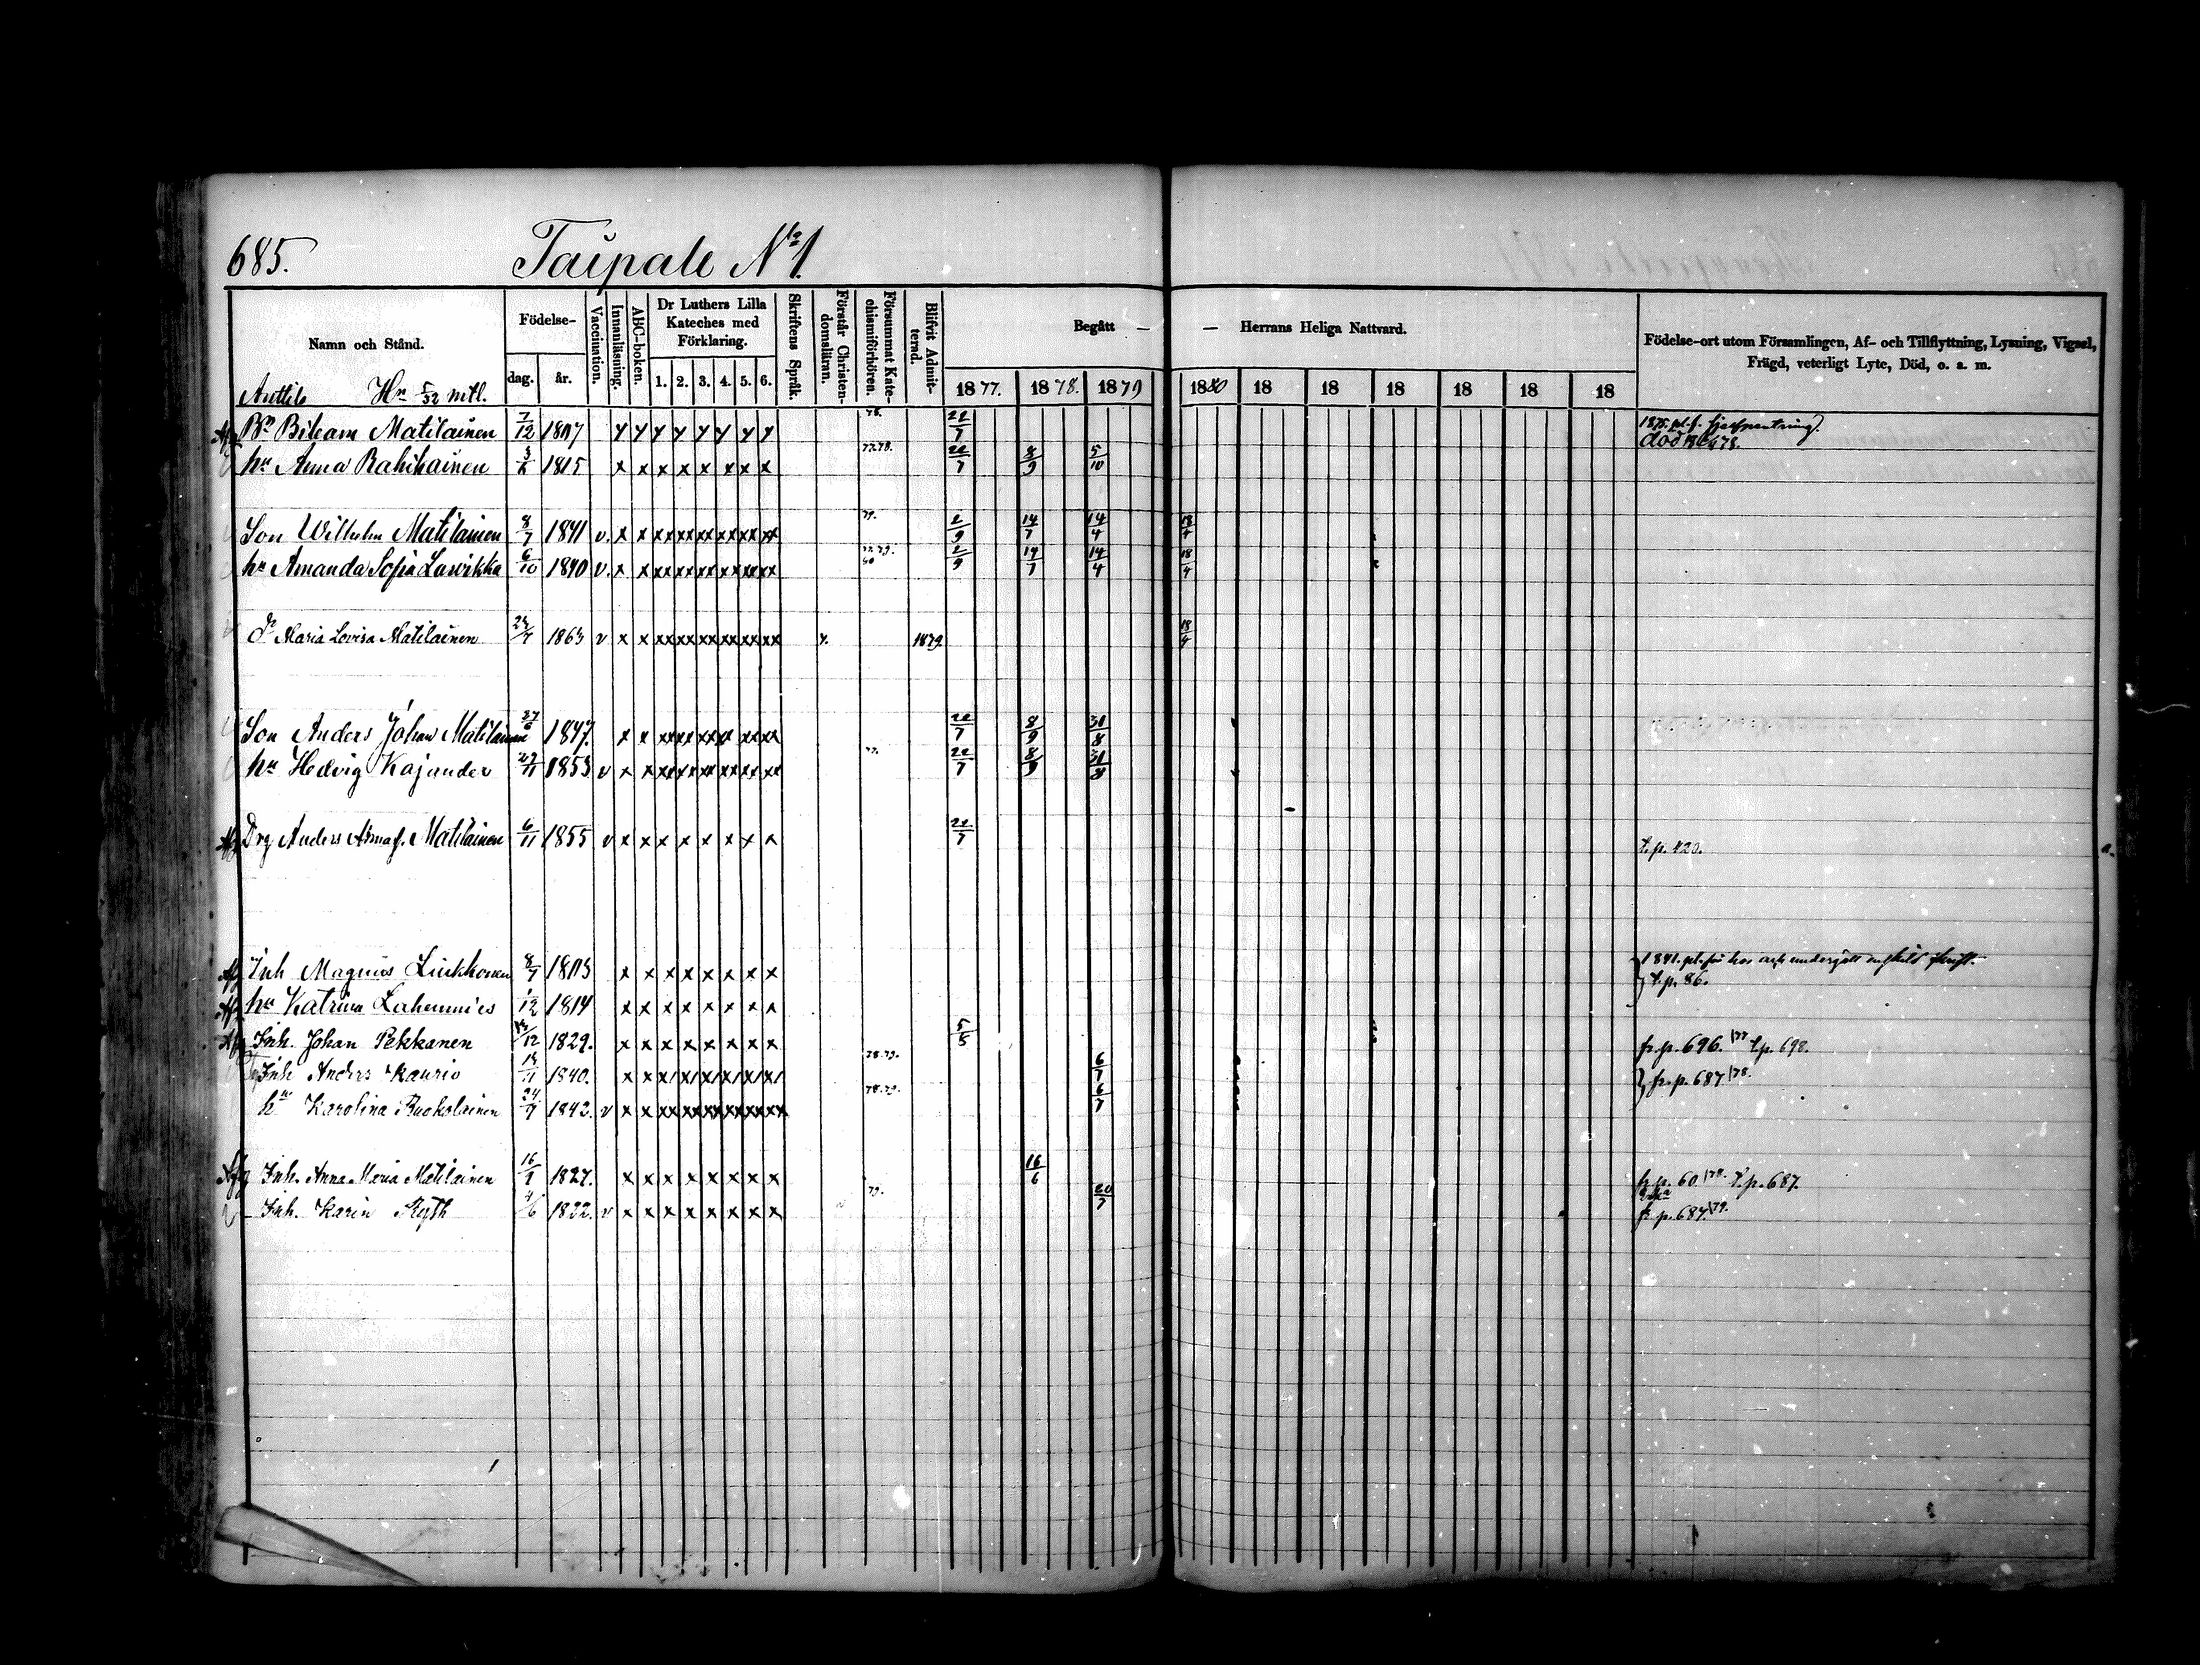 685. Taipale No 1.
Namn och Stånd. Födelse- dag. år. Vaccination. Innanläsning. ABC-boken. Dr Luthers Lilla Kateches med Förklaring. 1. 2. 3. 4. 5. 6. Skriftens Språk. Förstår Christendomsläran. Försummat Katechismiförhören. Blifvit Admitterad. Begått — — Herrans Heliga Nattvard. Födelse-ort utom Församlingen, Af- och Tillflyttning, Lysning, Vigsel, Frägd, veterligt Lyte, Död, o. a. m.
Anttila Hn 5/32 mtl. 1877. 1878. 1879 1880 18 18 18 18 18 18
Bn Bileam Matilainen 7/12 1807 y y y y y y y y 78. 22/7 död 78.
hu Anna Rahikainen 1815 x x x x x x x x 77.78. 22/7 8/9 5/10
Son Wilhelm Matilainen 8/7 1841 v. x x xx xx xx xx xx xx 79. 2/9 14/7 14/4 18/4
hu Amanda Sofia Lavikka 6/10 1840 v. x x xx xx xx xx xx xx 2/9 14/7 14/4 18/4
dr Maria Lovisa Matilainen 1863 v x x xx xx xx xx xx xx x 1879. 18/4
Son Anders Johan Matilainen 1847. x x xx xx xx xx xx xx 22/7 8/9 31/8
hu Hedvig Kajander 1853 v x x xx xx xx xx xx xx 22/7 8/9 31/8
Afg Drg Anders Matilainen 6/11 1855 v x x x x x x x x 22/7 t. p. 420.
Afg Inh Magnus Liukkonen 8/7 1803 x x x x x x x x 1841. t. p. 86.
Afg hu Katrina Lahenmies 1814 x x x x x x x x
Afg Inh. Johan Pekkanen 1829. x x x x x x x x 5/5 fr. p. 696. /77 t. p. 698.
Inh Anders Kaurio 1840. x x x/ x/ x/ x/ x/ x/ 78.79. 6/7 fr. p. 687 /78.
hu Karolina Ruokolainen 24/7 1842. v x x xx xx xx xx xx xx 78.79. 6/7
Afg Inh. Anna Maria Matilainen 16/9 1827. x x x x x x x x 16/6 fr. p. 60. /78. t. p. 687.
Inh. Karin Ryth 4/6 1822. v x x x x x x x x 79. 20/7 fr p. 687. /79.